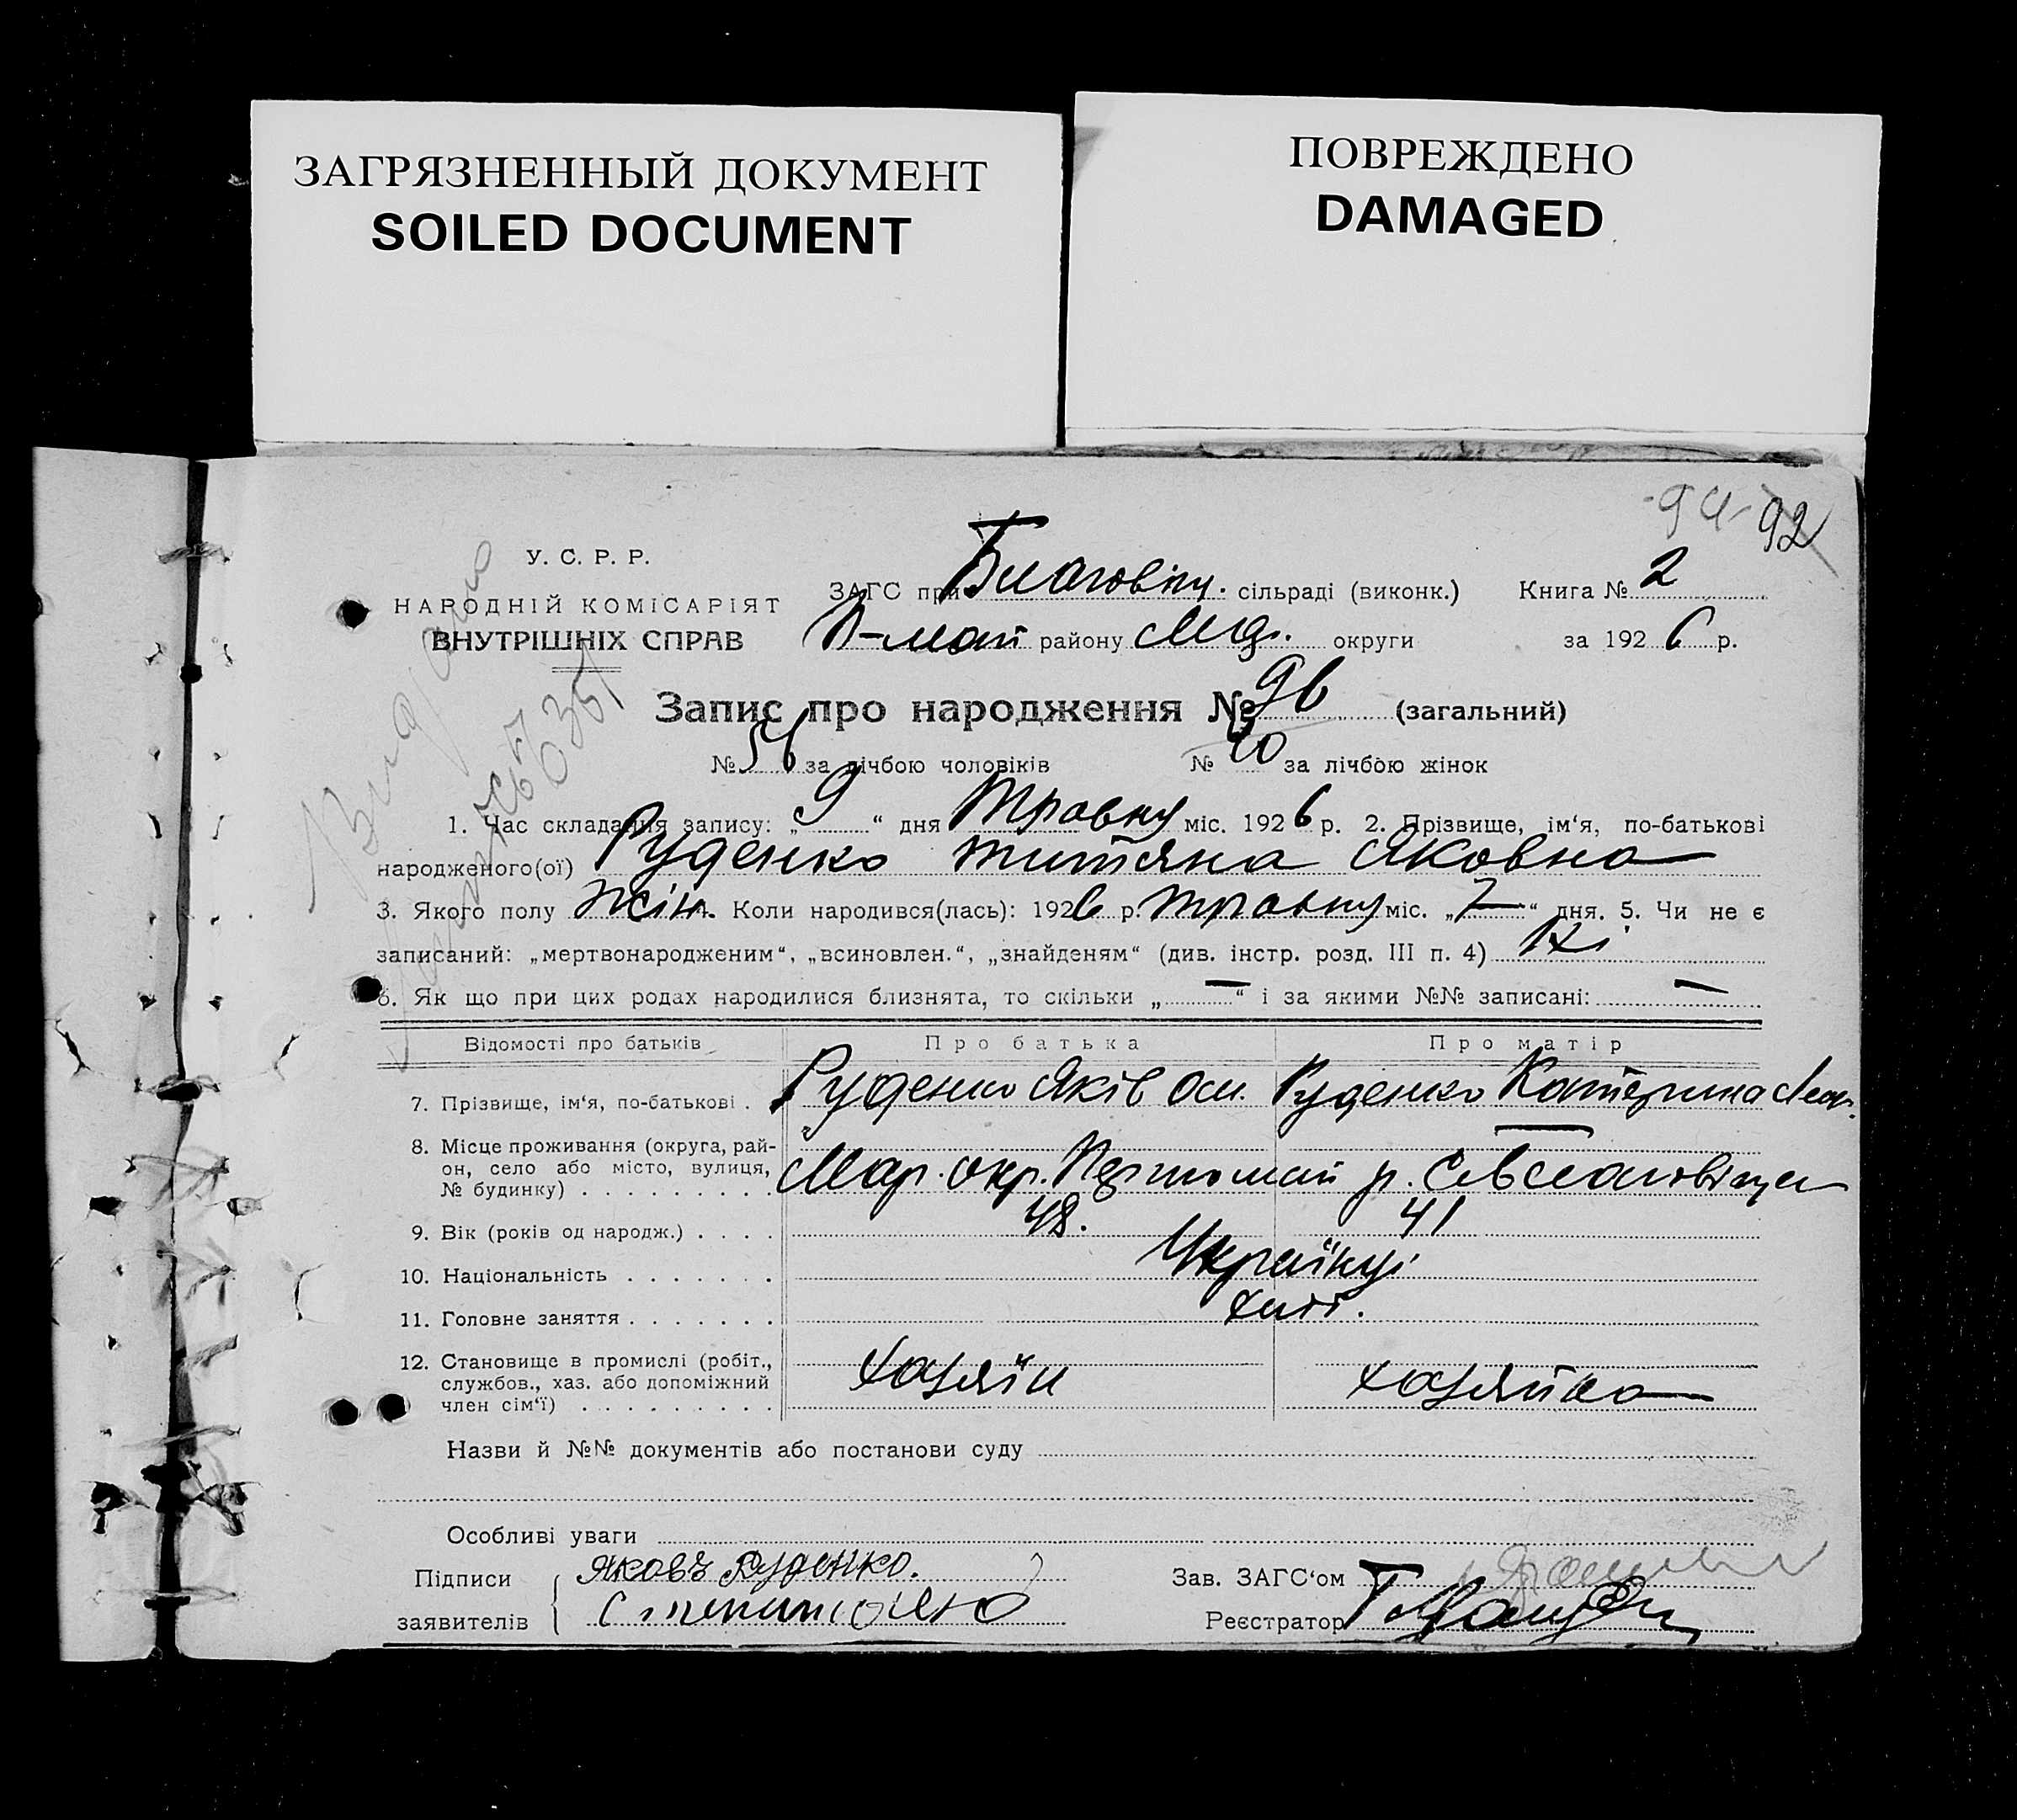 ЗАГРЯЗНЕННЫЙ ДОКУМЕНТ
SOILED DOCUMENT
ПОВРЕЖДЕНО
DAMAGED
94 92
У. С. Р. Р.
НАРОДНІЙ КОМІСАРІЯТ
ВНУТРІШНІХ СПРАВ
ЗАГС при Благовіщ. сільраді (виконк.) Книга № 2
П-май району Мар. округи за 1926 р.
Запис про народження № 96 (загальний)
№ 56 за лічбою чоловіків № 40 за лічбою жінок
1. Час складання запису: „9“ дня Травну міс. 1926 р. 2. Прізвище, ім‘я, по-батькові
народженого(ої) Руденко Титяна Яковна
3. Якого полу жін. 4. Коли народився(лась): 1926 р. Травну міс. „7“ дня. 5. Чи не є
записаний: „мертвонародженим“, „всиновлен.“, „знайденям“ (див. інстр. розд. III п. 4) Ні
6. Як що при цих родах народилися близнята, то скільки „—“ і за якими №№ записані: —
Відомості про батьків Про батька Про матір
7. Прізвище, ім‘я, по-батькові . Руденко Яків Руденко Катерина
8. Місце проживання (округа, рай-
он, село або місто, вулиця, Мар. окр. Первомай р.
№ будинку) . . . . . . . . .
9. Вік (років од народж.) . . . . 48. 41
10. Національність . . . . . . . Українці
11. Головне заняття . . . . . . .
12. Становище в промислі (робіт.,
службов., хаз. або допоміжний хазяїн хазяйка
член сім‘ї) . . . . . . . . .
Назви й №№ документів або постанови суду
Особливі уваги
Підписи Яковъ Руденко. Зав. ЗАГС‘ом
заявителів Реєстратор